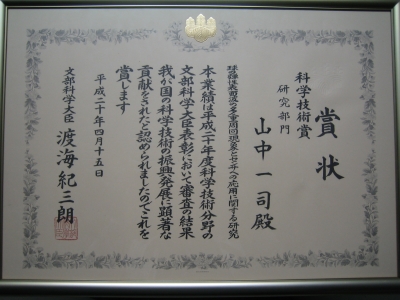 賞状
科学技術賞
研究部門
山中一司殿
球の弾性表面波の多重周回現象とセンサへの応用に関する研究
本業績は平成二十年度科学技術分野の
文部科学大臣表彰において審査の結果
我が国の科学技術の振興発展に顕著な
貢献をされたと認められましたのでこれを
賞します
平成二十年四月十五日
文部科学大臣 渡海紀三朗